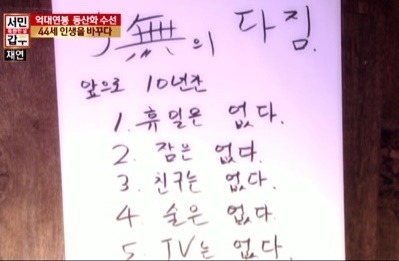 서민
갑부
재연
억대연봉 등산화 수선
44세 인생을 바꾸다
無의 다짐.
앞으로 10년간
1. 휴일은 없다.
2. 잠은 없다.
3. 친구는 없다.
4. 술은 없다.
5. TV는 없다.